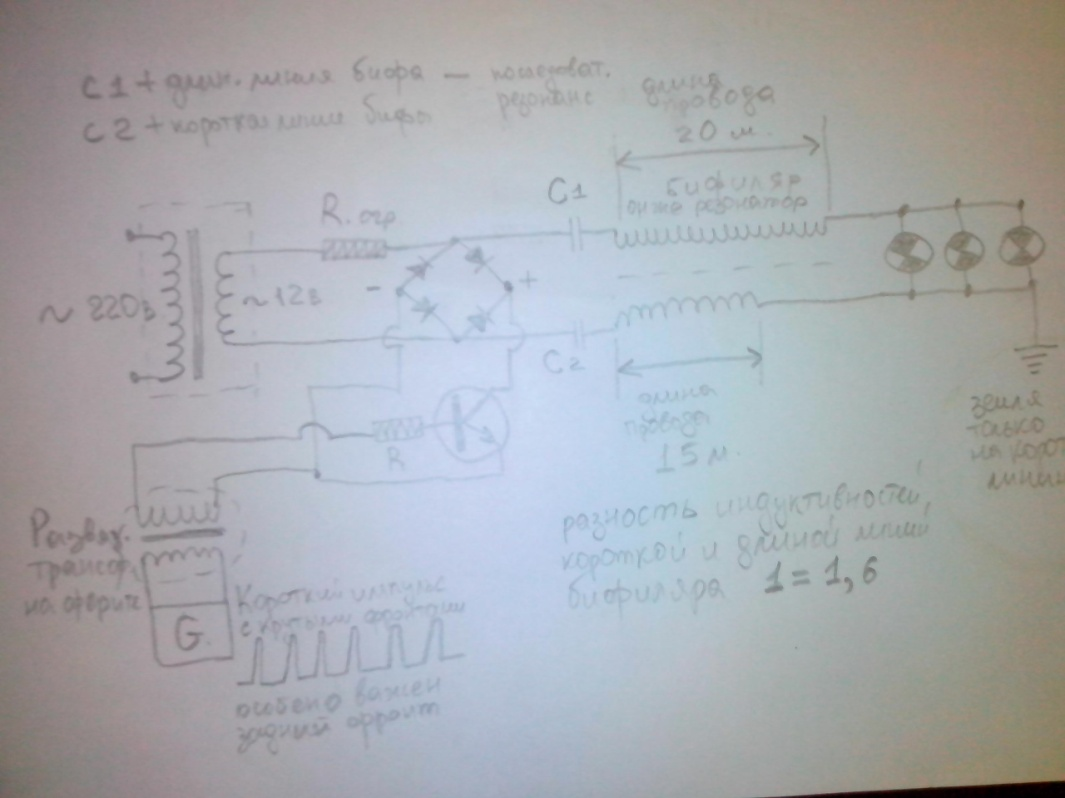 C1 + длин. линия бифра — последоват.
резонанс
C2 + короткая линия бифы
длина
провода
20 м.
бифиляр
он же резонатор
C1
R.огр.
~ 220в
~ 12в
-
+
C2
длина
провода
15 м.
R
земля
только
на корот
линии
Развяз.
трансф.
на феррите
G
Короткий импульс
с крутыми фронтами
особено важен
задний фронт
разность индуктивностей,
короткой и длиной линии
бифиляра 1 = 1,6